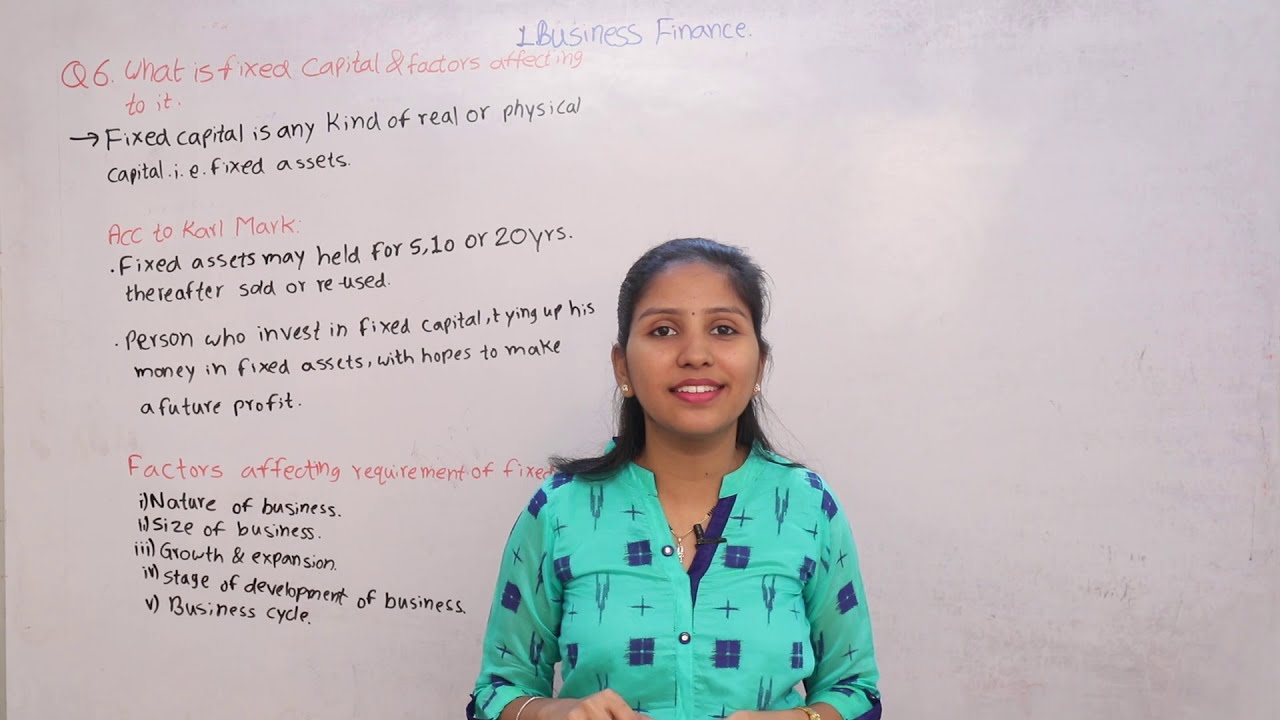 1 Business Finance.
Q 6. What is fixed Capital & factors affecting
to it.
→ Fixed capital is any Kind of real or physical
capital.i.e.fixed assets.
Acc to Karl Mark:
. Fixed assets may held for 5,10 or 20yrs.
thereafter sold or re-used.
. Person who invest in fixed capital, tying up his
money in fixed assets, with hopes to make
a future profit.
Factors affecting requirement of fixed
i) Nature of business.
ii) Size of business.
iii) Growth & expansion.
iv) Stage of development of business.
v) Business cycle.